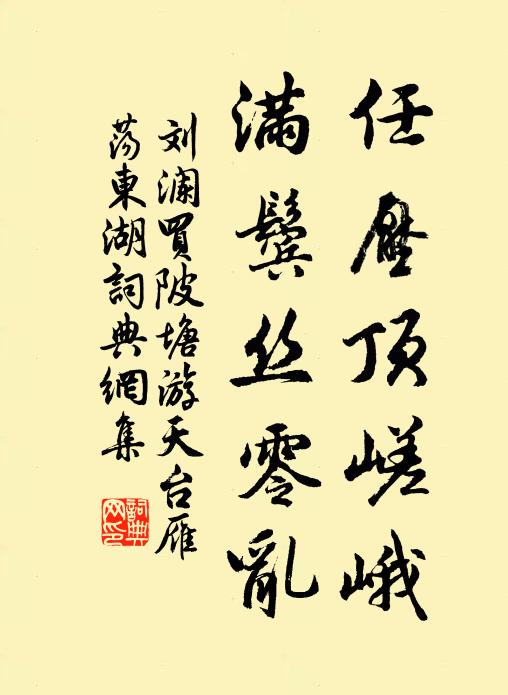 任压顶嵯峨
满鬓丝零亂
刘澜買陂塘游天台雁
荡東湖詞典網集
詞典
网印